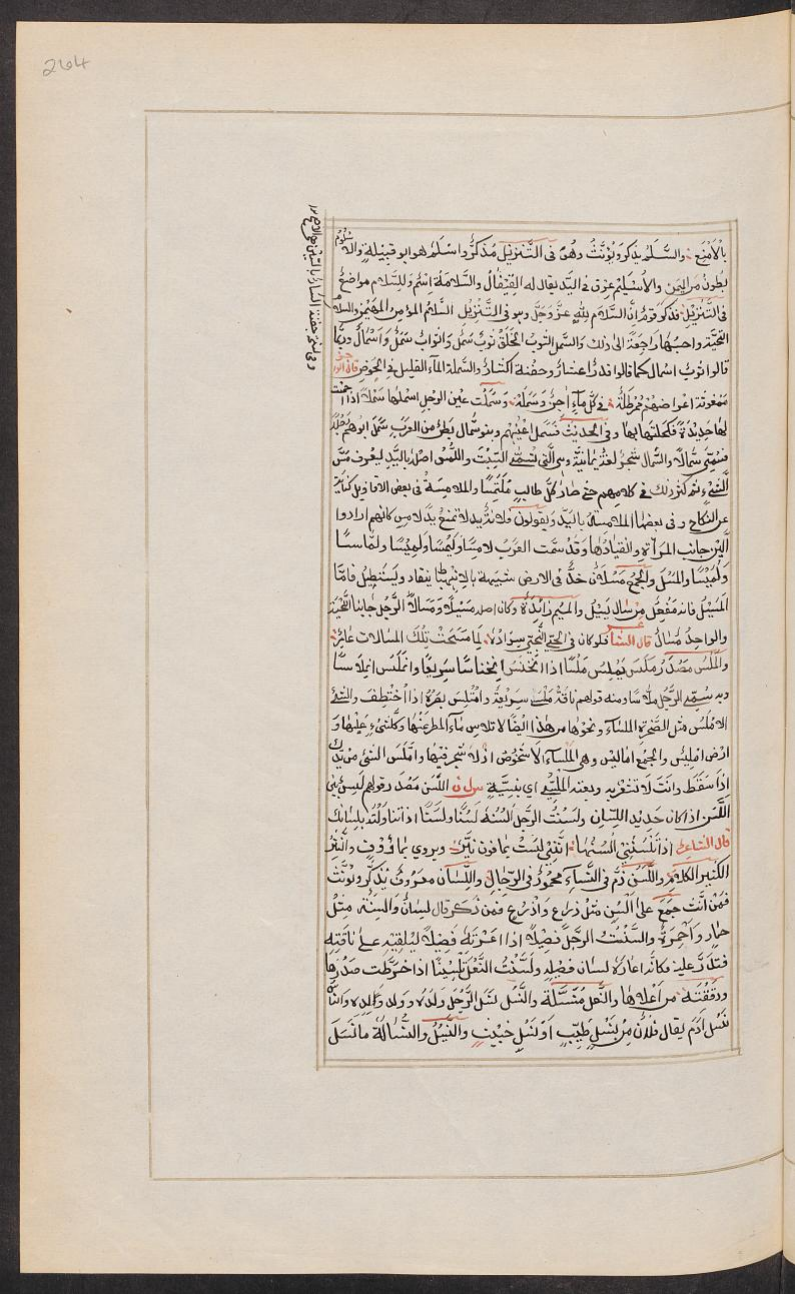 264
بالأمنع والسَّلم يذكر ويؤنّث وهو فى التنزيل مذكّر واسلم هو ابو قبيلة والاسلوم
بطون من اليمن والأسيلم عرق فى اليد يقال له القيفال والسلامة اسم وللسلام مواضع
فى التنزيل فذكر قوم ان السلام لله عزّ وجلّ وهو فى التنزيل السلام المؤمن المهيمن والسلام
التحيّة واحسبها راجعة الى ذلك والسمل الثوب الخلق ثوب سمل واثواب سمل واسمال وربما
قالوا ثوب اسمال كما قالوا قدر اعشار وجفنة اكسار والسملة الماء القليل فى الحوض قال الراجز
ممغوثة اعراضهم ممرطلة فى كل ماء آجن وسملة وسملت عين الرجل اسملها سملا اذا احميت
لها حديدة فكحلتها بها وفى الحديث فسمل اعينهم وبنو سمال بطن من العرب سمل ابوهم رجلا
فسمّى سمالا والسمال شجر لغة يمانية وهى التى تسمّى الشبث واللمس اصله باليد ليعرف مسّ
الشىء ثم كثر ذلك فى كلامهم حتى صار كل طالب ملتمسا والملامسة فى بعض الاقاويل كناية
عن النكاح وفى بعضها الملامسة باليد ويقولون فلانة لا تمنع يد لامس كانهم ارادوا
لين جانب المرأة وانقيادها وقد سمّت العرب لامسا ولميسا ولميسا ولمّاسا
ولميسا والمسل والجمع مسلان خدّ فى الارض شبيهة بالانهباط ينقاد ويستطيل فامّا
المسيل فانه مفعل من سال يسيل والميم زائدة وكان اصله مسيلا ومسالا الرجل جانبا اللحية
والواحد مسال قال الشاعر فلو كان فى الحى النجىّ سواده لما مسحت تلك المسالات عامر
والملس مصدر ملس يملس ملسا اذا انخنس انخناسا سريعا وانملس انملاسا
وبه سمّى الرجل ملاسا ومنه قولهم ناقة ملسى سريعة وامتلس بصره اذا اختطف والشىء
الاملس مثل الصخرة الملساء ونحوها من هذا ايضا لا تلابس ماء المطر عنها وكل شىء عليها و
ارض امليس والجمع اماليس وهى الملساء لا شخوص اذ لا شجر فيها وامّلس الشىء من يدك
اذا سقط وانت لا تشعر به وبعته الملسى اى بنسيّة س ل ن اللسن مصدر قولهم لسن بيّن
اللسن اذا كان حديد اللسان ولسنت الرجل ألسنه لسنا ولسنا اذا تناولته بلسانك
قال الشاعر اذا تلسننى ألسنها اننى لست بموهون فقر ويروى بما فوف والغمر
الكثير الكلام واللسن ذمّ فى النساء محمود فى الرجال واللسان معروف يذكّر ويؤنّث
فمن انّث جمع على ألسن مثل ذراع واذرع فمن ذكّر قال لسان والسنة مثل
حمار واحمرة والسنت الرجل فصيلا اذا اعرته فصيلا ليلقيه على ناقته
فتدرّ عليه فكانه اعاره لسان فصيله ولسّنت النعل تلسينا اذا خرطت صدرها
ودقّقته من اعلاها والنعل ملسّنة والنسل نسل الرجل ولده وولد والده والناس
نسل آدم يقال فلان من نسل طيّب او نسل خبيث والنسيل والنسالة ما نسل